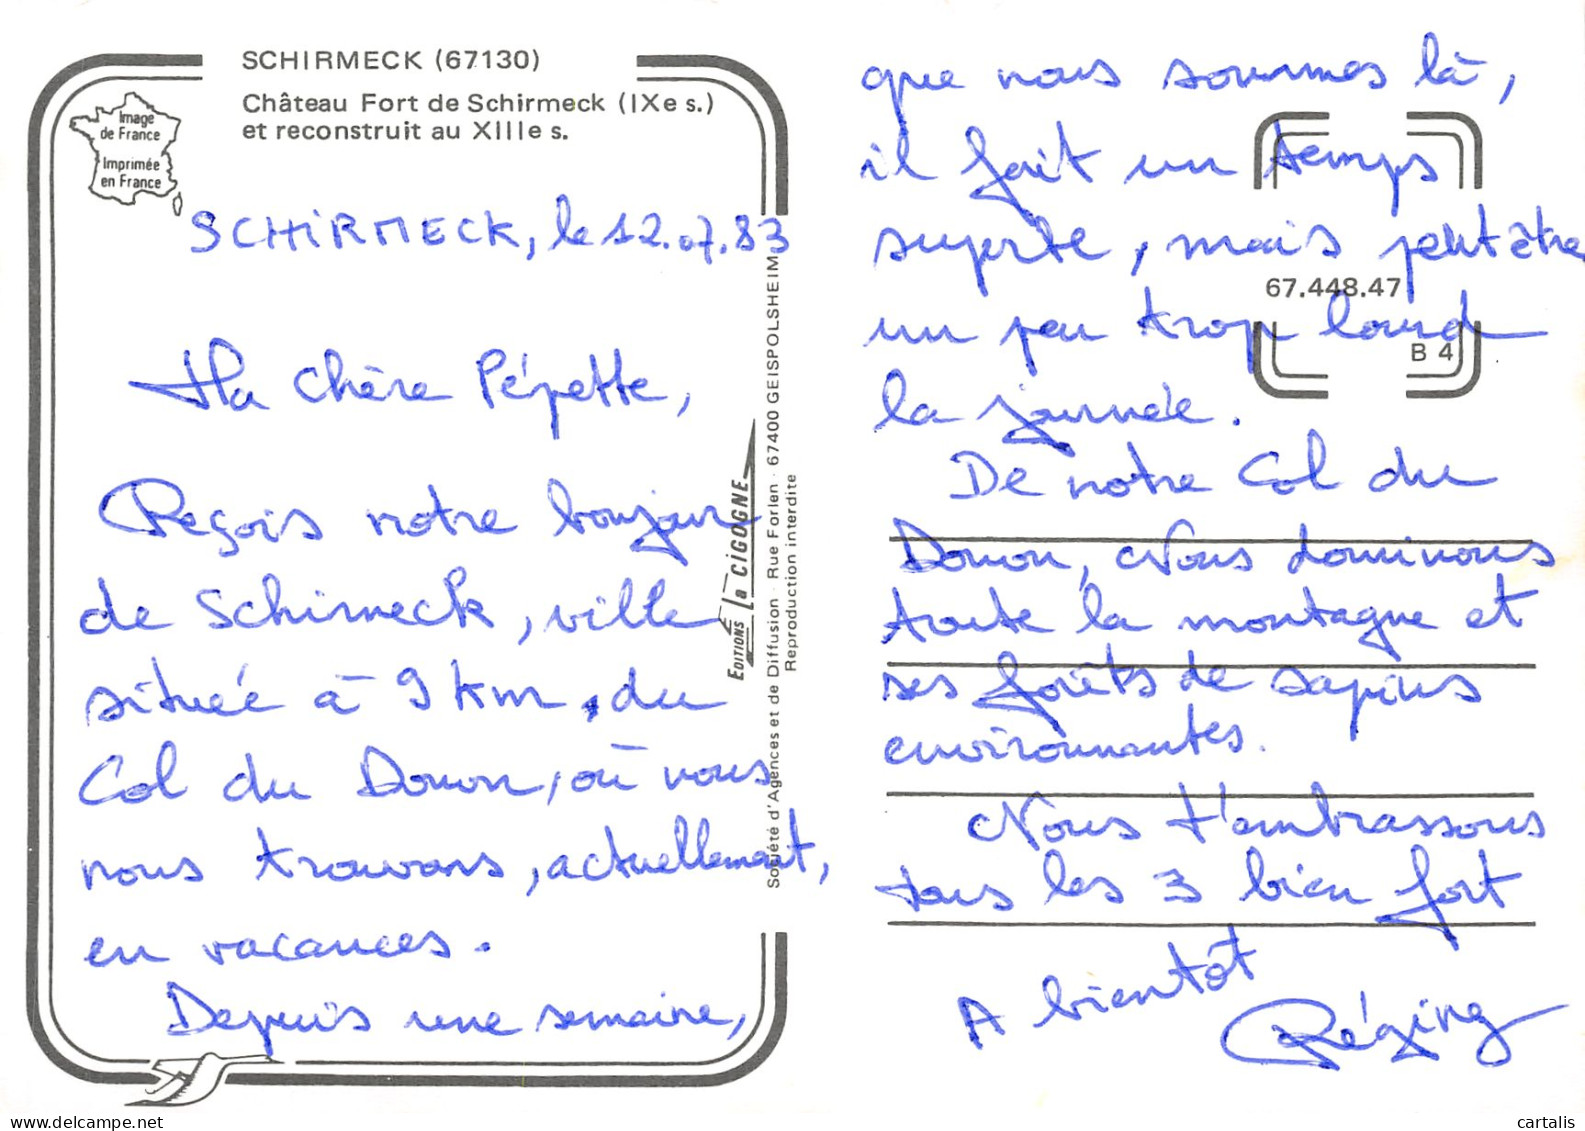 SCHIRMECK (67130)
Château Fort de Schirmeck (IXe s.)
et reconstruit au XIIIe s.
Image
de France
Imprimée
en France
SCHIRMECK, le 12.07.83
Ma chère Pépette,
Reçois notre bonjour
de Schirmeck, ville
située à 9 km, du
Col du Donon, où nous
nous trouvons, actuellement,
en vacances.
Depuis une semaine,
EDITIONS La CIGOGNE
Société d'Agences et de Diffusion - Rue Forlen - 67400 GEISPOLSHEIM
Reproduction interdite
que nous sommes là,
il fait un temps
superbe, mais peut être
un peu trop lourd
la journée.
De notre Col du
Donon, Nous dominons
toute la montagne et
ses forêts de sapins
environnantes.
Nous t'embrassons
tous les 3 bien fort
A bientôt
Régine
67.448.47
B 4
www.delcampe.net
cartalis